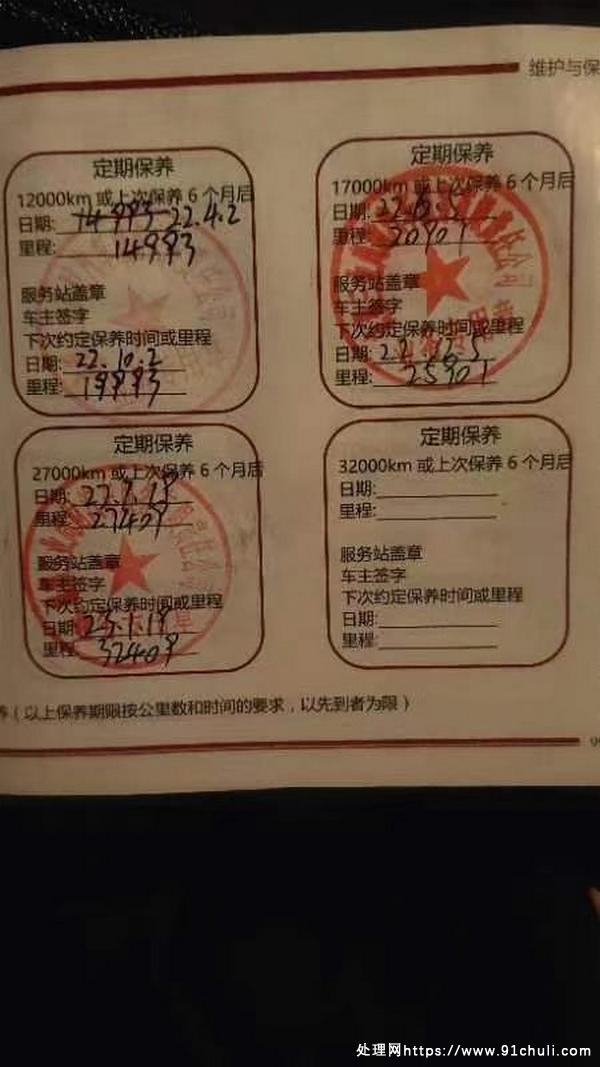 维护与保
定期保养
12000km 或上次保养 6 个月后
日期: 14993 22.4.2
里程: 14993
服务站盖章
车主签字
下次约定保养时间或里程
日期: 22.10.2
里程: 19993
定期保养
17000km 或上次保养 6 个月后
日期:
里程: 20901
服务站盖章
车主签字
下次约定保养时间或里程
日期: 22.12.5
里程: 25901
定期保养
27000km 或上次保养 6 个月后
日期: 22.7.19
里程: 27409
服务站盖章
车主签字
下次约定保养时间或里程
日期: 23.1.19
里程: 32409
定期保养
32000km 或上次保养 6 个月后
日期:
里程:
服务站盖章
车主签字
下次约定保养时间或里程
日期:
里程:
养（以上保养期限按公里数和时间的要求，以先到者为限）
处理网https://www.91chuli.com